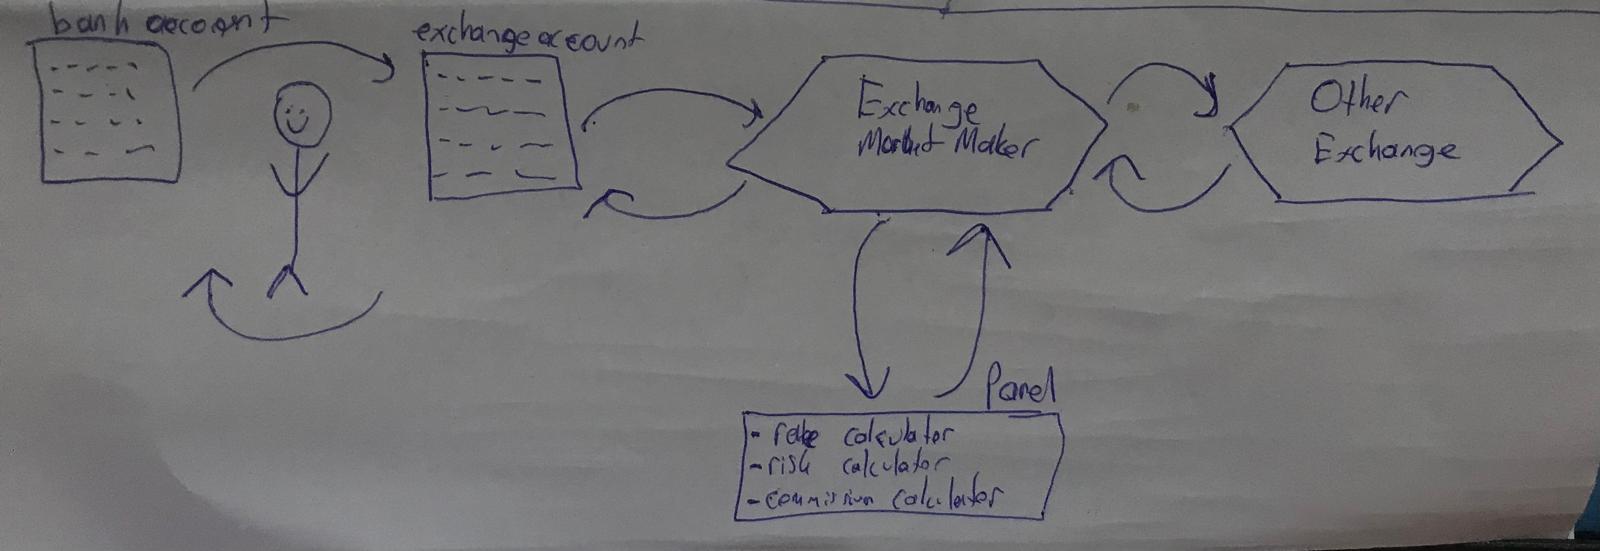 bank account
exchange account
Exchange
Market Maker
Other
Exchange
Panel
- rate calculator
- risk calculator
- commission calculator